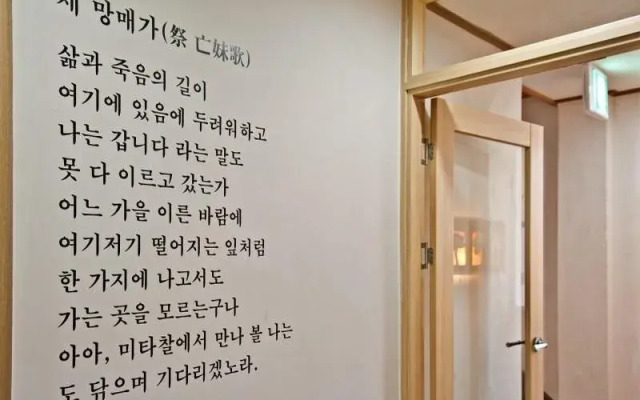 제 망매가(祭 亡妹歌)
삶과 죽음의 길이
여기에 있음에 두려워하고
나는 갑니다 라는 말도
못 다 이르고 갔는가
어느 가을 이른 바람에
여기저기 떨어지는 잎처럼
한 가지에 나고서도
가는 곳을 모르는구나
아아, 미타찰에서 만나 볼 나는
도 닦으며 기다리겠노라.